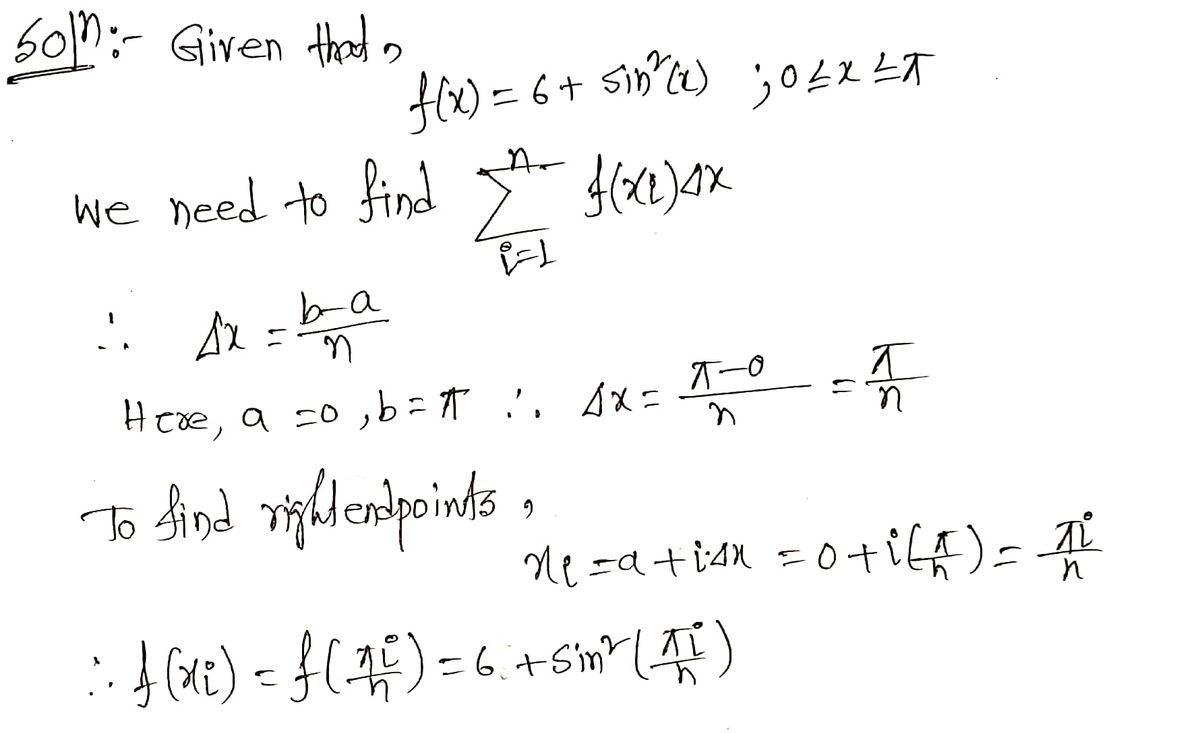 Solⁿ:- Given that,
f(x) = 6 + sin²(x) ; 0 ≤ x ≤ π
we need to find ∑ⁿᵢ₌₁ f(xᵢ)Δx
∴ Δx = (b-a)/n
Here, a = 0, b = π ∴ Δx = (π-0)/n = π/n
To find right endpoints,
xᵢ = a + i·Δx = 0 + i(π/n) = πi/n
∴ f(xᵢ) = f(πi/n) = 6 + sin²(πi/n)